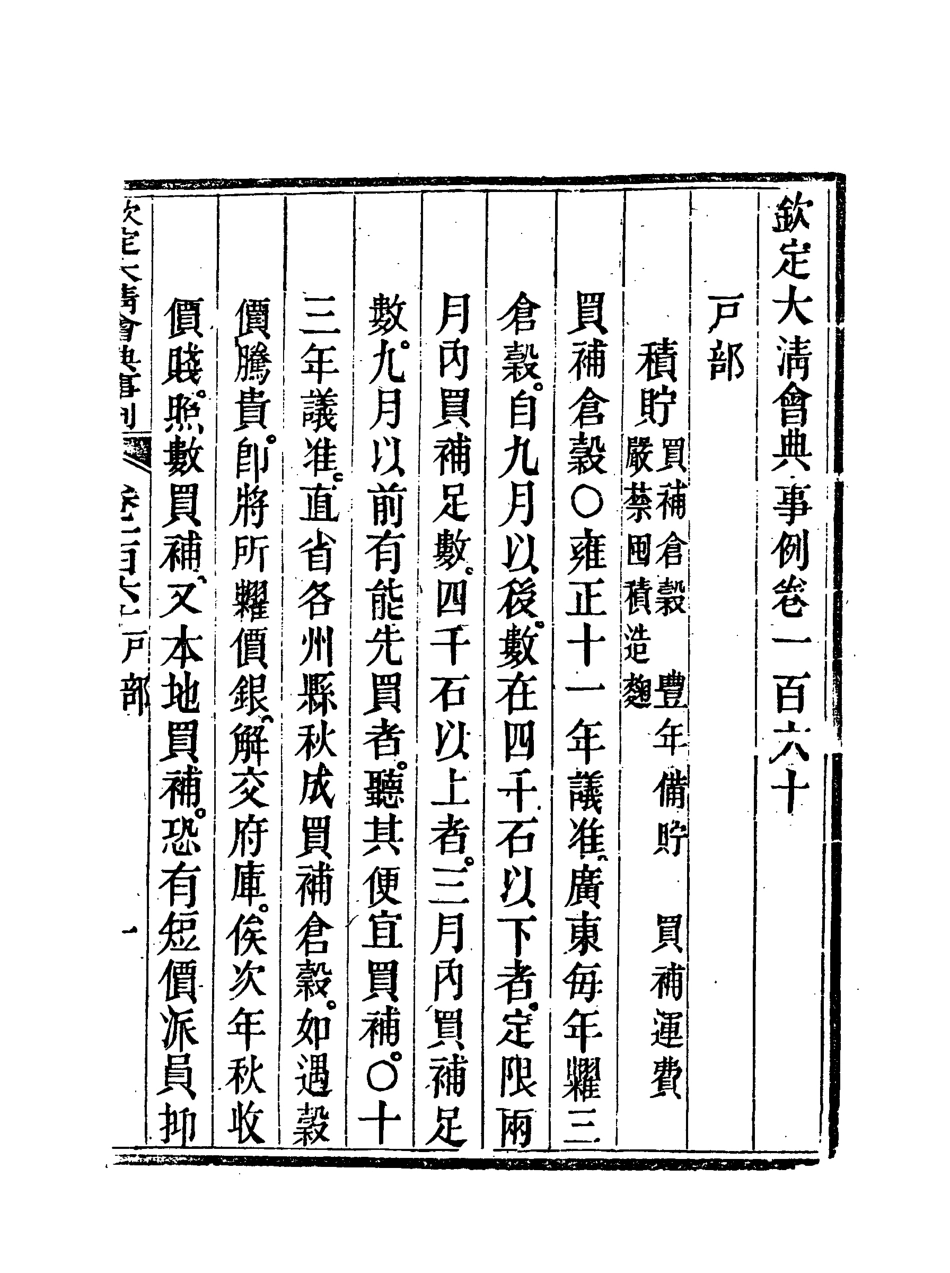 欽定大淸會典事例卷一百六十
戸部
積貯 買補倉穀 豐年備貯 買補運費
嚴禁囤積造麴
買補倉穀○雍正十一年議准、廣東每年糶三
倉穀。自九月以後。數在四千石以下者。定限兩
月內買補足數。四千石以上者。三月內買補足
數。九月以前有能先買者。聽其便宜買補。○十
三年議准。直省各州縣秋成買補倉穀。如遇穀
價騰貴。卽將所糶價銀、解交府庫。俟次年秋收
價賤。照數買補、又本地買補。恐有短價派員抑
欽定大淸會典事例 卷一百六十 戸部 一